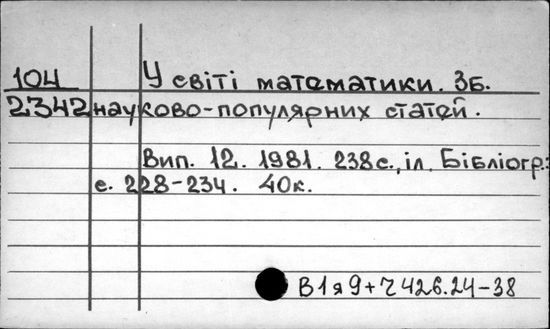 104 У світі математики. Зб.
2342 науково-популярних статей.
Вип. 12. 1981. 238с., іл. Бібліогр.:
с. 228-234. 40к.
В1я9+Ч426.24-38